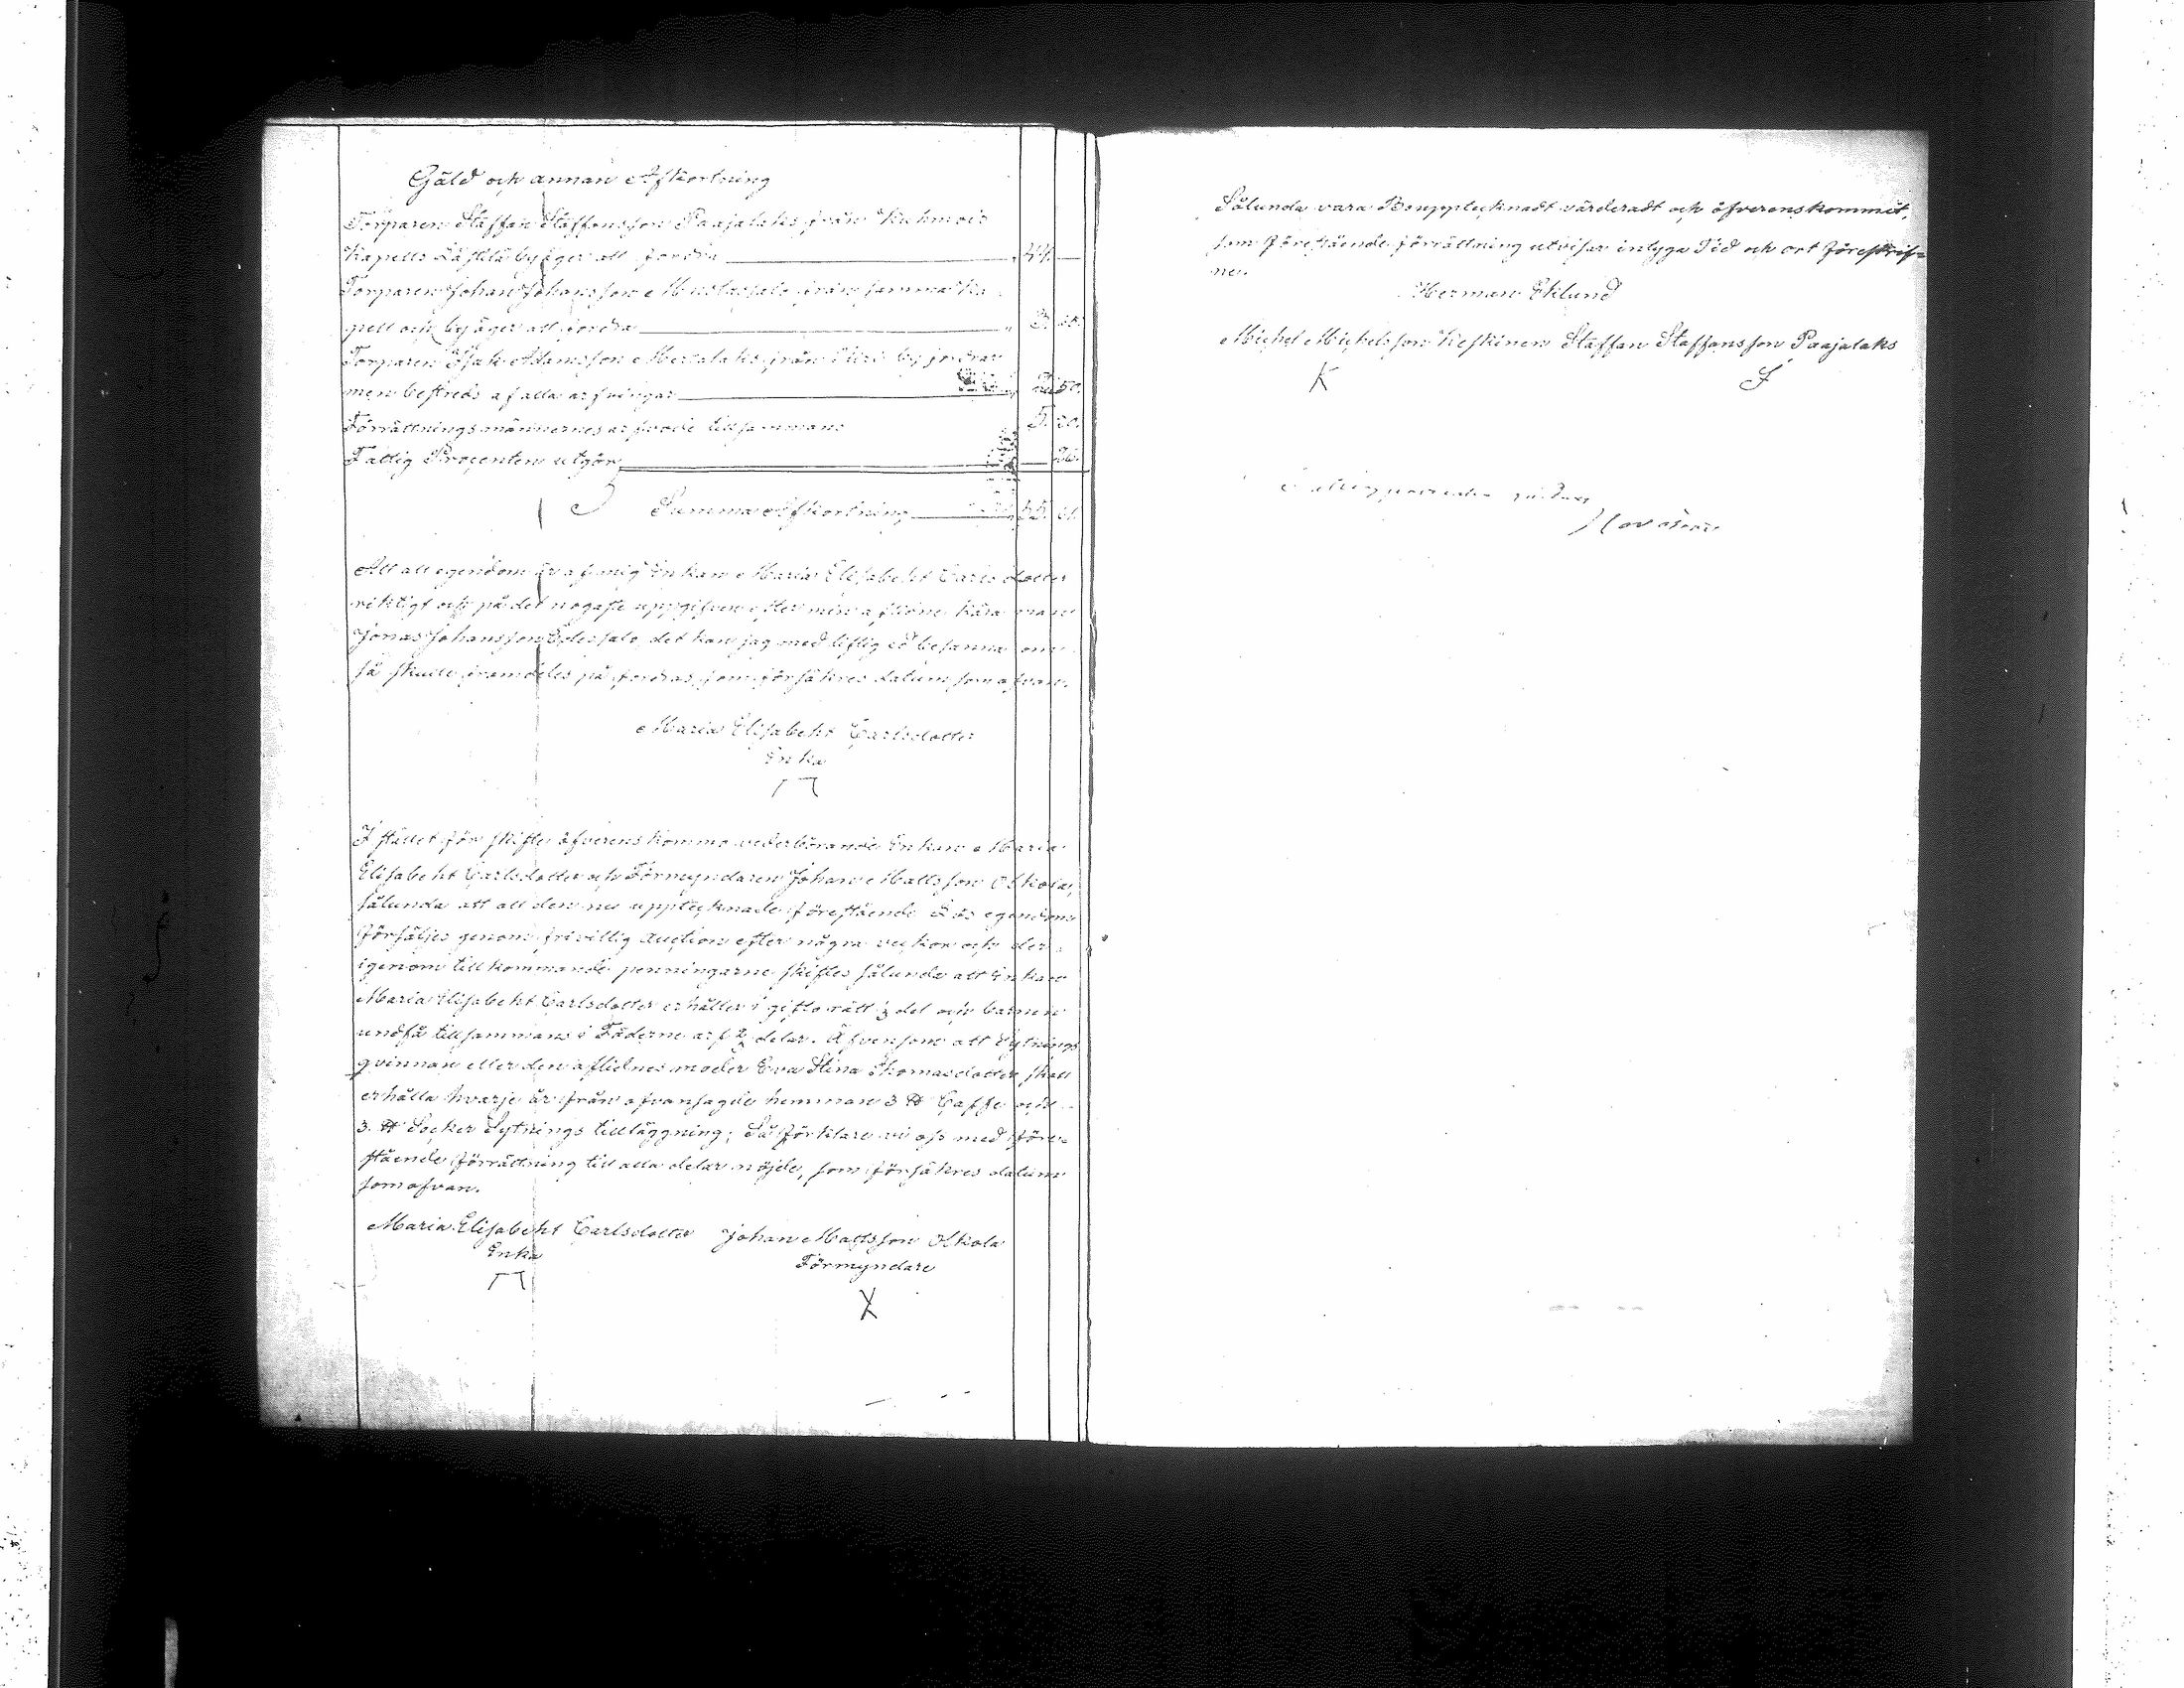 Gäld och annan Afkortning
Torparen Staffan Staffansson Paajalaks från Kuhmois
Kapells by äger att fordra 44. —
Torparen Johan Johansson från samma Ka-
pell och by äger att fordra 3.
Torparen Isak Adamsson från by fordrar
men bestrids af alla arfvingar 50.
Förrättningsmännernes arfvode tillsammans 5. 20.
Fattig Procenten utgör 36.
Summa Afkortning 55.
Att all egendom är af mig Enkan Maria Elisabeht Carlsdotter
riktigt och på det nogaste uppgifven efter min aflidne kära man
Jonas Johansson det kan jag med liflig ed besanna om
så skulle framdeles på fordras, som försäkres datum som ofvan.
Maria Elisabeht Carlsdotter
Enka
I stället för skifte öfverenskommo vederbörande Enkan Maria
Elisabeht Carlsdotter och Förmyndaren Johan Mattsson Olkola,
sålunda att all den nu upptecknade förestående Lös egendom
försäljes genom frivillig auction efter några veckor och der-
igenom tillkommande penningarne skiftes sålunda att Enkan
Maria Elisabeht Carlsdotter erhåller i gifto rätt ⅓ del och barnen
undfå tillsammans i Fäderne arf ⅔ delar. Äfvensom att Sytnings
qvinnan eller den aflidnes moder Eva Stina Thomasdotter skall
erhålla hvarje år från ofvansagde hemman 3 ℔ Caffe och
3. ℔ Socker Sytnings tilläggning; Så förklare vi oss med före-
stående förrättning till alla delar nöjde, som försäkres datum
som ofvan.
Maria Elisabeht Carlsdotter Johan Mattsson Olkola
Enka
Förmyndare
Sålunda vara Boupptecknadt värderadt och öfverenskommit,
som förestående förrättning utvisar intyga Tid och ort föreskrif-
ne.
Herman Eklund
Michel Mickelsson Keskinen Staffan Staffansson Paajalaks
K S